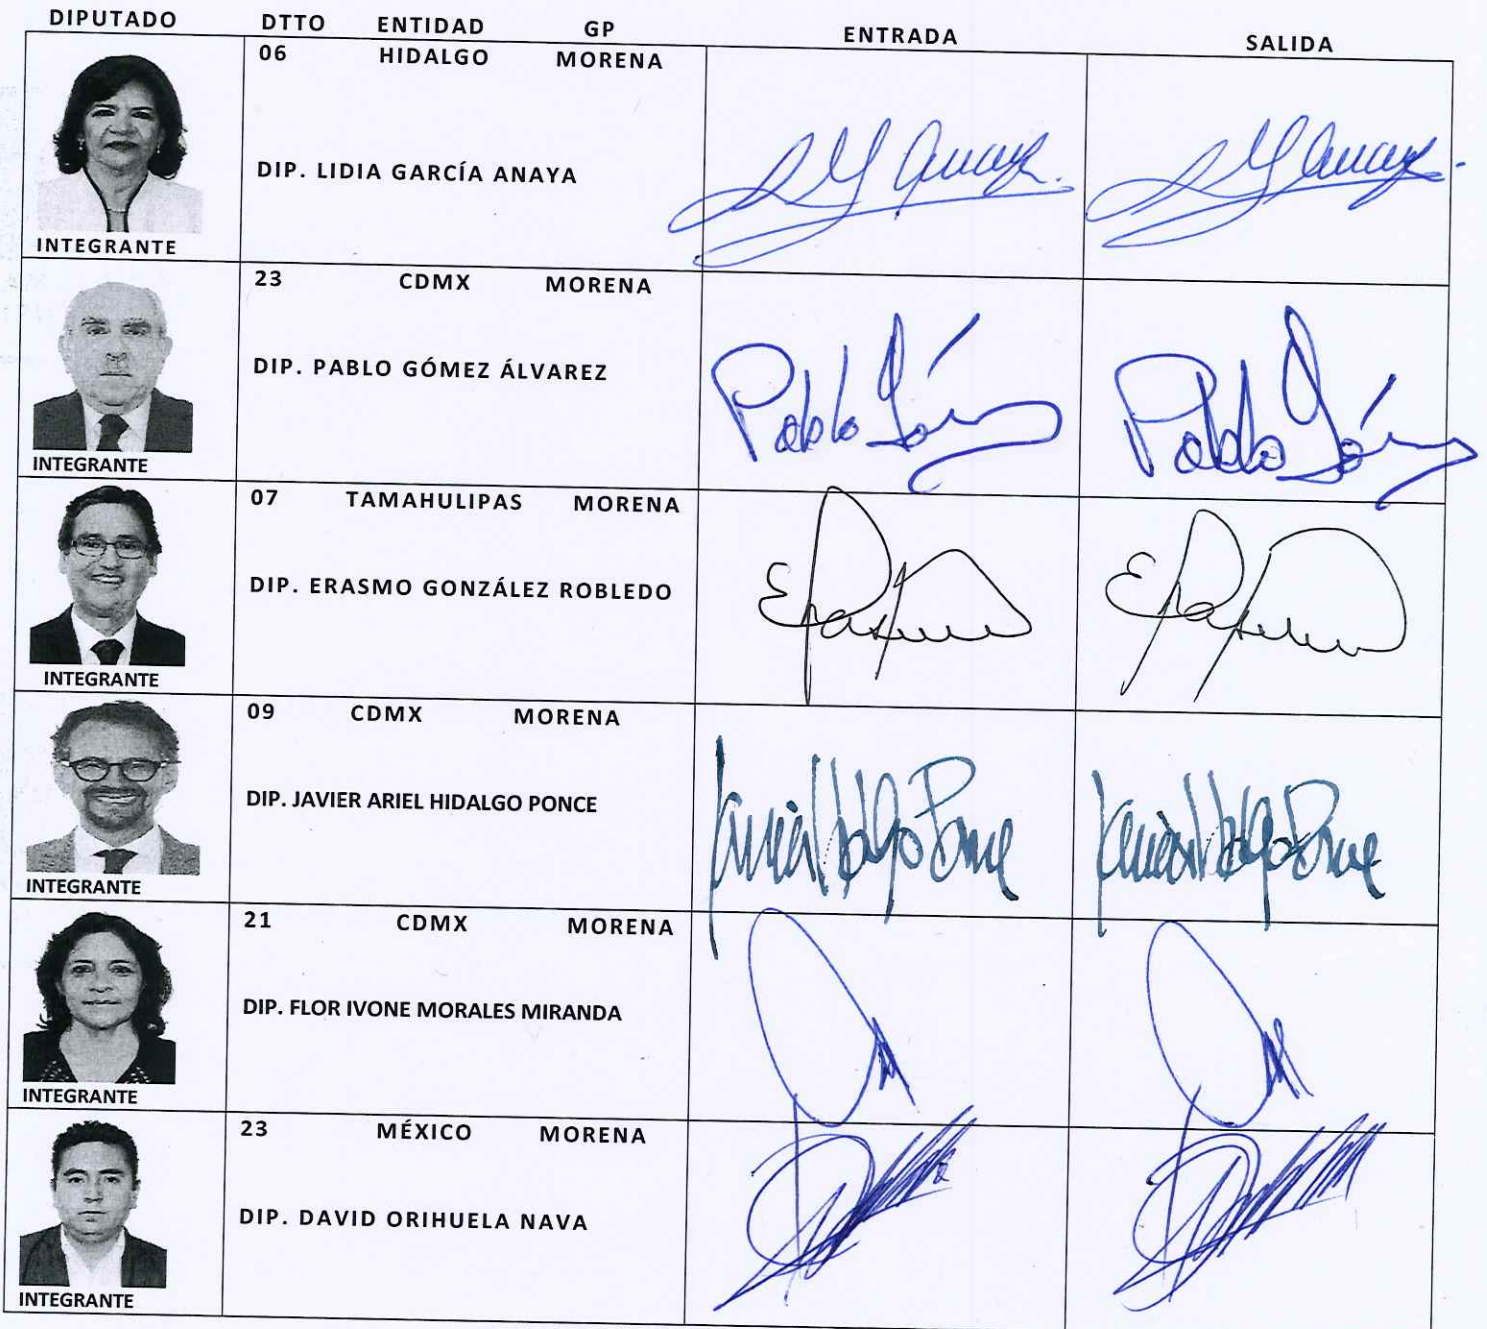 DIPUTADO DTTO ENTIDAD GP ENTRADA SALIDA
06 HIDALGO MORENA
DIP. LIDIA GARCÍA ANAYA
INTEGRANTE
23 CDMX MORENA
DIP. PABLO GÓMEZ ÁLVAREZ
Pablo Góm Pablo Góm
INTEGRANTE
07 TAMAHULIPAS MORENA
DIP. ERASMO GONZÁLEZ ROBLEDO
INTEGRANTE
09 CDMX MORENA
DIP. JAVIER ARIEL HIDALGO PONCE
Javier Hidalgo Ponce Javier Hidalgo Ponce
INTEGRANTE
21 CDMX MORENA
DIP. FLOR IVONE MORALES MIRANDA
INTEGRANTE
23 MÉXICO MORENA
DIP. DAVID ORIHUELA NAVA
INTEGRANTE